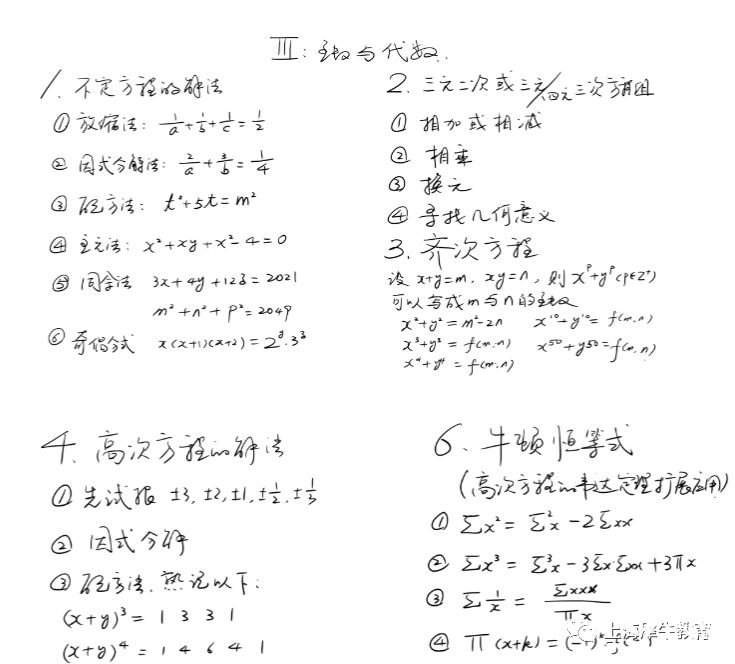 III: 函数与代数.
1. 不定方程的解法
① 放缩法: 1/a + 1/b + 1/c = 1/2
② 因式分解法: 2/a + 3/b = 1/4
③ 配方法: t² + 5t = m²
④ 主元法: x² + xy + x² - 4 = 0
⑤ 同余法 3x + 4y + 12z = 2021
m² + n² + p² = 2049
⑥ 奇偶分式 x(x+1)(x+2) = 2^y · 3^z
2. 三元二次或三元/四元三次方程组
① 相加或相减
② 相乘
③ 换元
④ 寻找几何意义
3. 齐次方程
设 x+y=m, xy=n, 则 x^p + y^p (p∈Z⁺)
可以写成m与n的函数
x² + y² = m² - 2n x¹⁰ + y¹⁰ = f(m,n)
x³ + y³ = f(m,n) x⁵⁰ + y⁵⁰ = f(m,n)
x⁴ + y⁴ = f(m,n)
4. 高次方程的解法
① 先试根 ±3, ±2, ±1, ±1/2, ±1/3
② 因式分解
③ 配方法, 熟记以下:
(x+y)³ = 1 3 3 1
(x+y)⁴ = 1 4 6 4 1
6. 牛顿恒等式
(高次方程的韦达定理扩展应用)
① Σx² = Σ²x - 2Σxx
② Σx³ = Σ³x - 3ΣxΣxx + 3πx
③ Σ 1/x = Σxxx / πx
④ π(x+k) = (-1)
上海犀牛教育